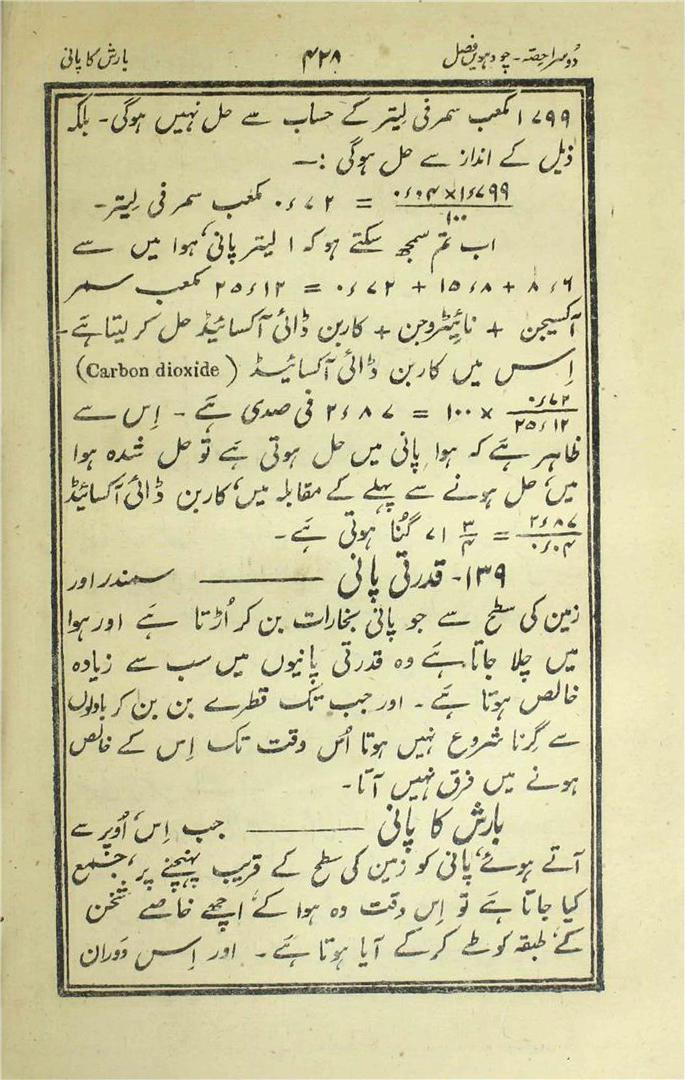 دُوسرا حِصّہ - چودہویں فصل ۴۲۸ بارش کا پانی
۱۷۹۹ مکعب سمر فی لِیتر کے حساب سے حل نہیں ہوگی - بلکہ
ذیل کے انداز سے حل ہوگی :—
۰٫۰۴ × ۱٫۷۹۹ / ۱۰۰ = ۰٫۷۲ مکعب سمر فی لِیتر -
اب تم سمجھ سکتے ہو کہ ۱ لیتر پانی، ہوا میں سے
۸٫۶ + ۱۵٫۸ + ۰٫۷۲ = ۲۵٫۱۲ مکعب سمر
آکسیجن + نائیٹروجن + کاربن ڈائی آکسائیڈ حل کر لیتا ہے -
اِس میں کاربن ڈائی آکسائیڈ (Carbon dioxide)
۰٫۷۲ / ۲۵٫۱۲ × ۱۰۰ = ۲٫۸۷ فی صدی ہے - اِس سے
ظاہر ہے کہ ہوا پانی میں حل ہوتی ہے تو حل شدہ ہوا
میں، حل ہونے سے پہلے کے مقابلہ میں، کاربن ڈائی آکسائیڈ
۲٫۸۷ / ۰٫۰۴ = ۷۱ ۳/۴ گُنا ہوتی ہے -
۱۳۹- قدرتی پانی ——— سمندر اور
زمین کی سطح سے جو پانی بخارات بن کر اُڑتا ہے اور ہوا
میں چلا جاتا ہے وہ قدرتی پانیوں میں سب سے زیادہ
خالص ہوتا ہے - اور جب تک قطرے بن بن کر بادلوں
سے گِرنا شروع نہیں ہوتا اُس وقت تک اِس کے خالص
ہونے میں فرق نہیں آتا -
بارش کا پانی ——— جب اِس، اُوپر سے
آتے ہوئے، پانی کو زمین کی سطح کے قریب پہنچنے پر، جمع
کیا جاتا ہے تو اِس وقت وہ ہوا کے، اچھے خاصے ثخن
کے، طبقہ کو طے کرکے آیا ہوتا ہے - اور اِس دَوران